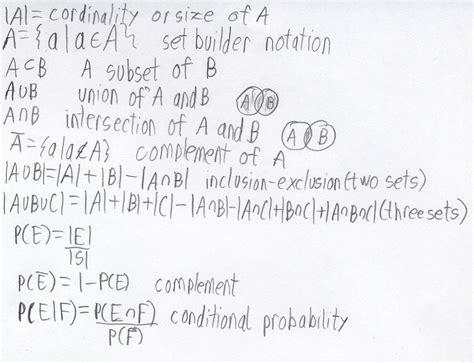 |A|= cordinality or size of A
A={a|a∈A} set builder notation
A⊂B A subset of B
A∪B union of A and B A B
A∩B intersection of A and B A B
A̅={a|a∉A} complement of A
|A∪B|=|A|+|B|-|A∩B| inclusion-exclusion (two sets)
|A∪B∪C|=|A|+|B|+|C|-|A∩B|-|A∩C|+|B∩C|+|A∩B∩C| (three sets)
P(E)=|E|/|S|
P(E̅)=1-P(E) complement
P(E|F)=P(E∩F)/P(F) conditional probability